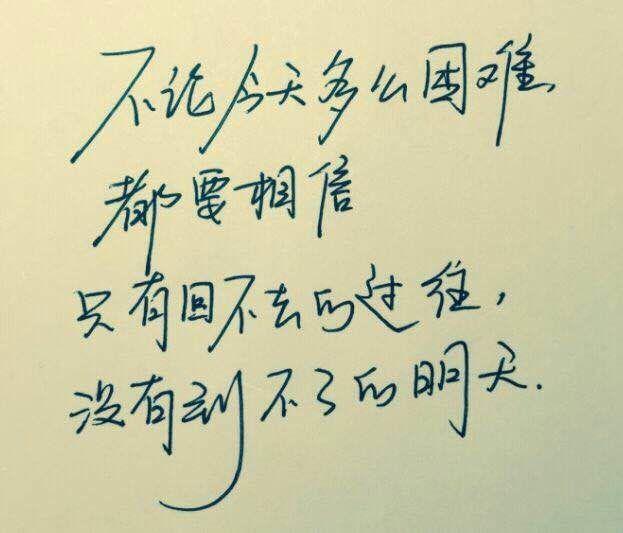 不论今天多么困难
都要相信
只有回不去的过往，
没有到不了的明天.